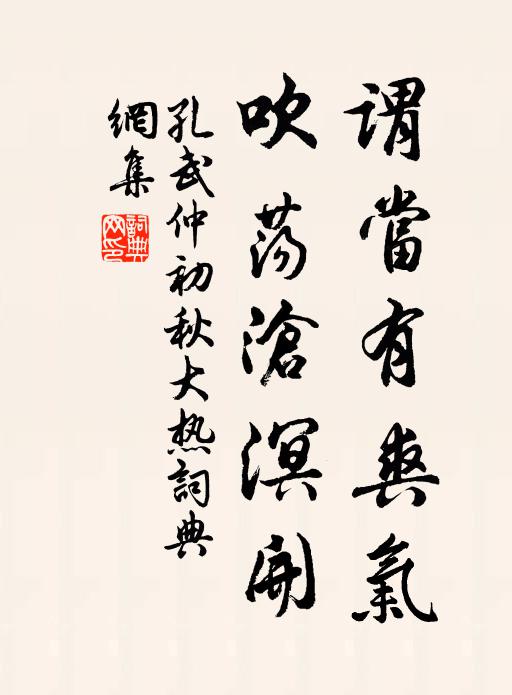 謂當有爽氣
吹蕩滄溟開
孔武仲初秋大熱詞典
網集
詞典網印